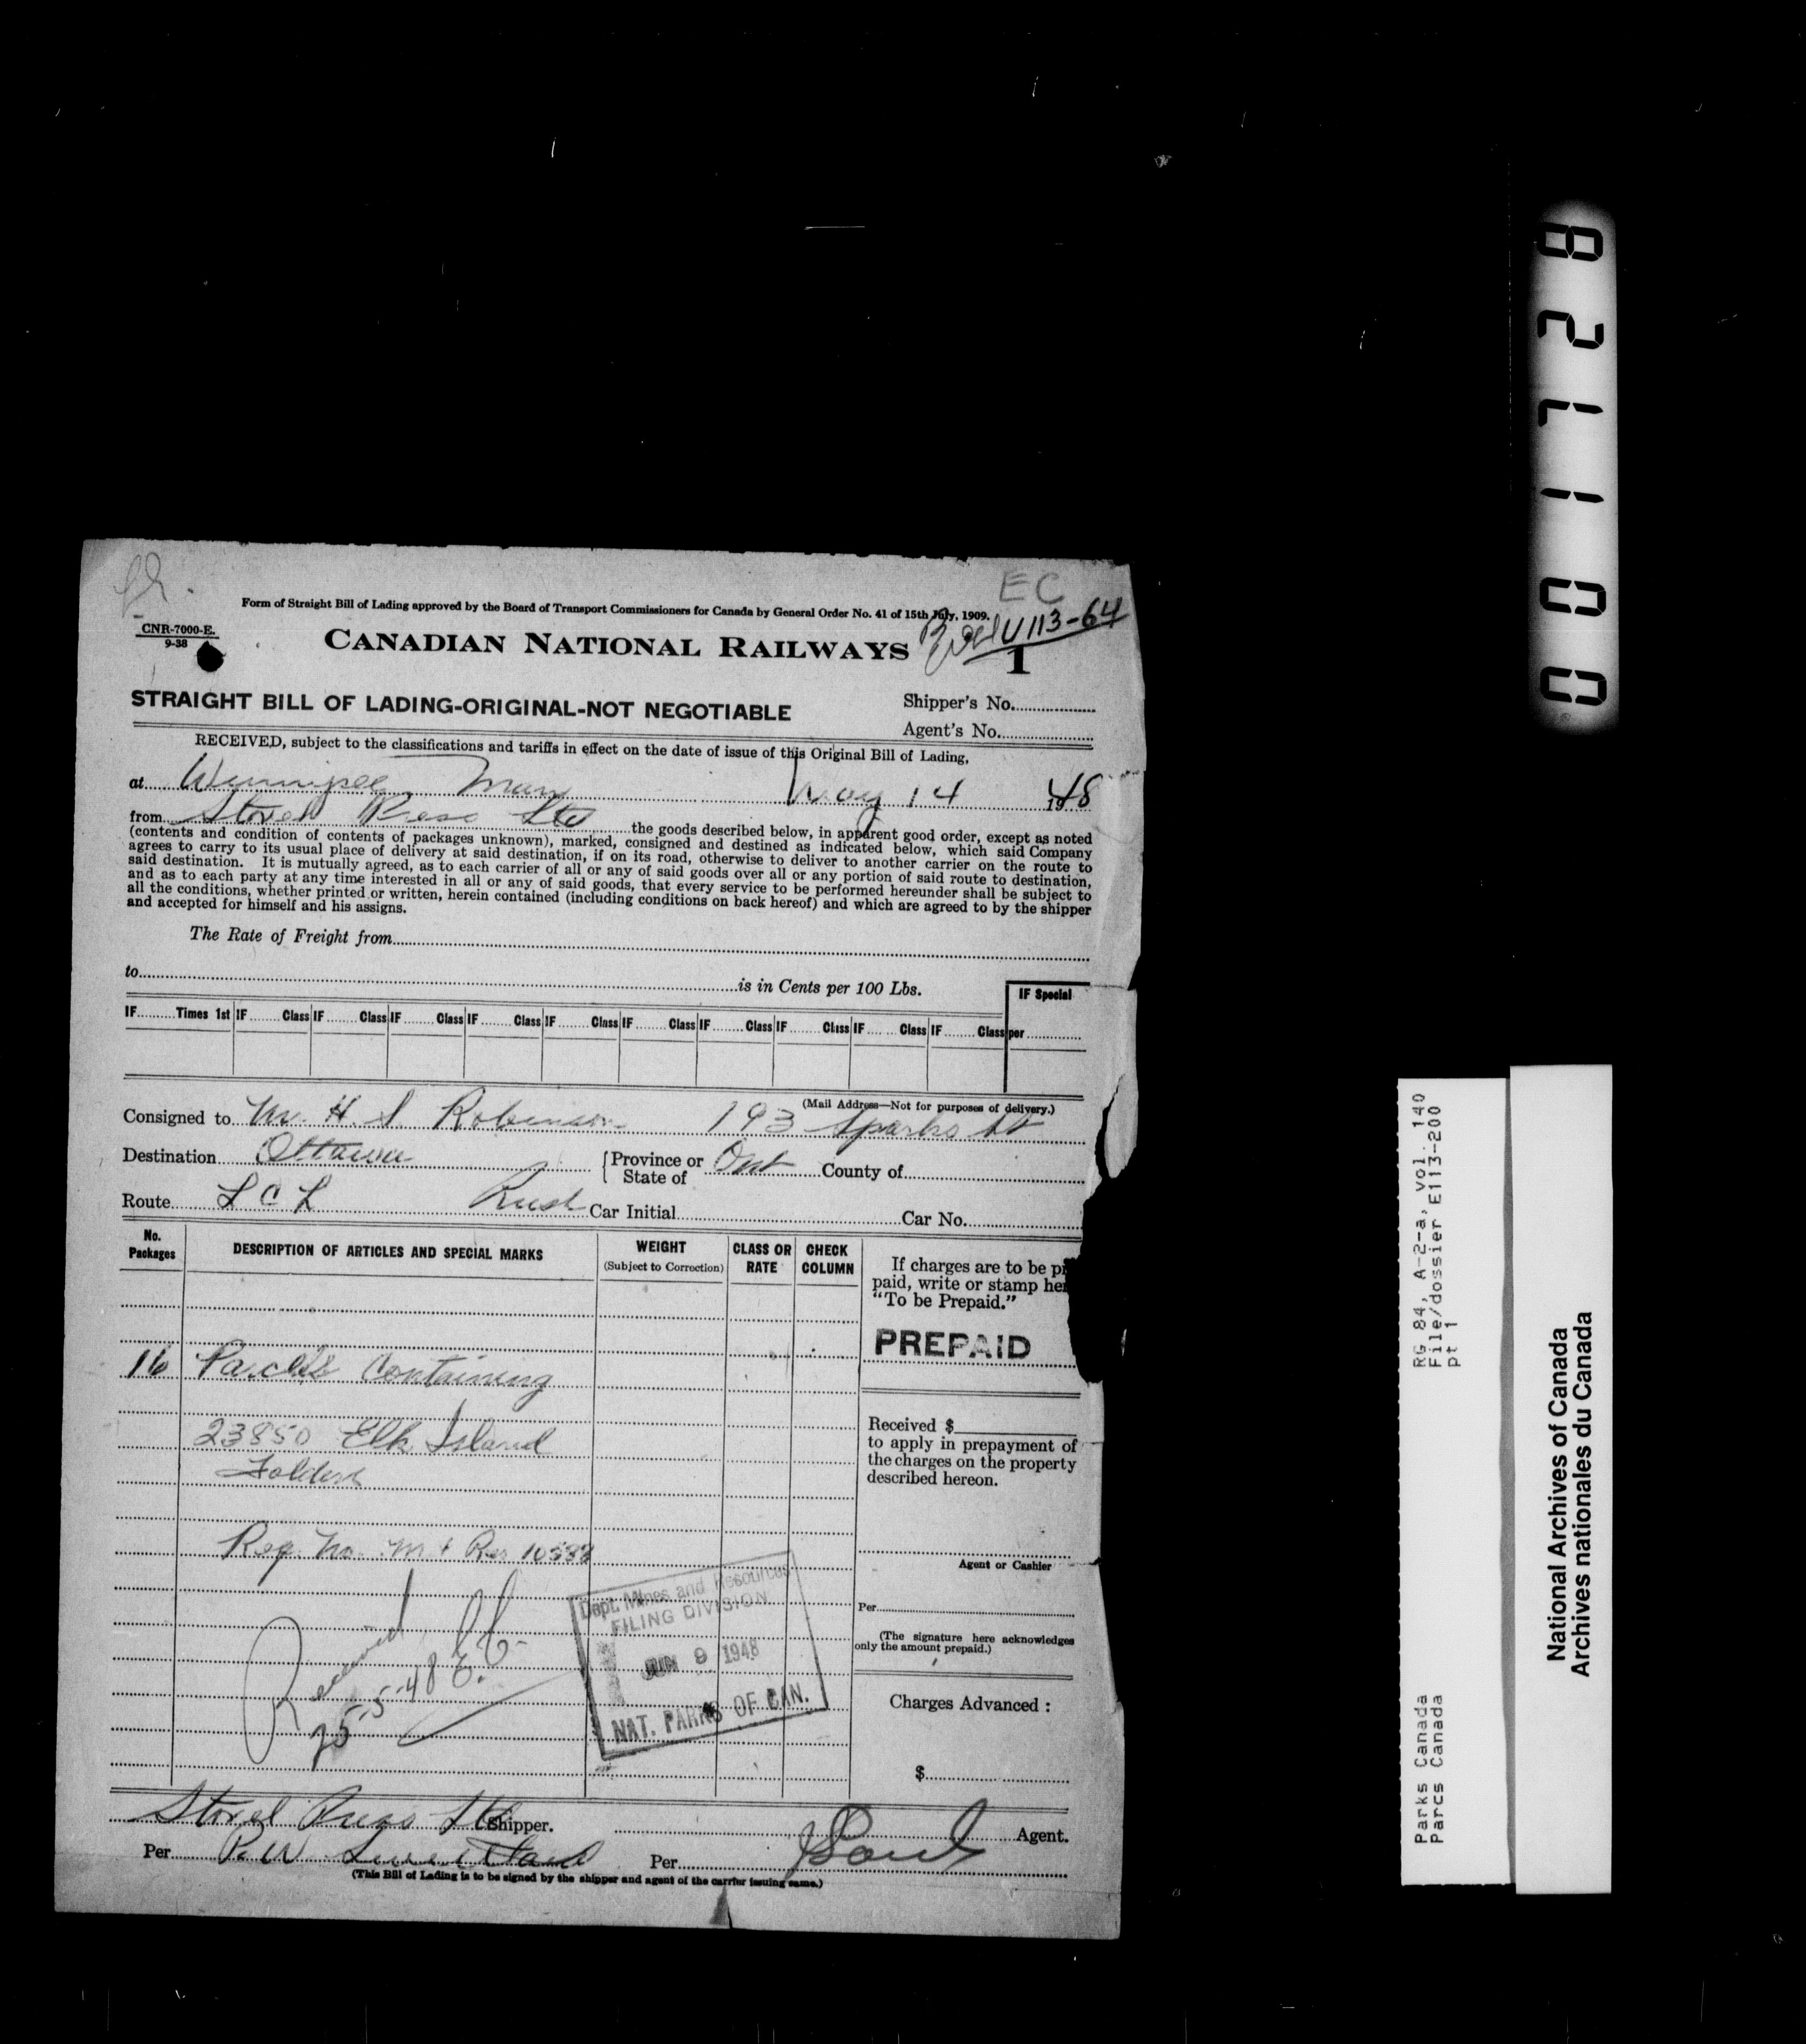 EC
Form of Straight Bill of Lading approved by the Board of Transport Commissioners for Canada by General Order No. 41 of 15th July, 1909.
U113-64
CNR-7000-E.
9-38
CANADIAN NATIONAL RAILWAYS
1
STRAIGHT BILL OF LADING-ORIGINAL-NOT NEGOTIABLE
Shipper's No.
Agent's No.
RECEIVED, subject to the classifications and tariffs in effect on the date of issue of this Original Bill of Lading,
at Winnipeg Man May 14 1948
from Stovel Press Ltd the goods described below, in apparent good order, except as noted
(contents and condition of contents of packages unknown), marked, consigned and destined as indicated below, which said Company
agrees to carry to its usual place of delivery at said destination, if on its road, otherwise to deliver to another carrier on the route to
said destination. It is mutually agreed, as to each carrier of all or any of said goods over all or any portion of said route to destination,
and as to each party at any time interested in all or any of said goods, that every service to be performed hereunder shall be subject to
all the conditions, whether printed or written, herein contained (including conditions on back hereof) and which are agreed to by the shipper
and accepted for himself and his assigns.
The Rate of Freight from
to is in Cents per 100 Lbs.
IF Special
IF Times 1st IF Class IF Class IF Class IF Class IF Class IF Class IF Class IF Class IF Class IF Class per
(Mail Address—Not for purposes of delivery.)
Consigned to Mr. H. S. Robinson 193 Sparks St
Destination Ottawa Province or State of Ont County of
Route L C L Rush Car Initial Car No.
No. Packages
DESCRIPTION OF ARTICLES AND SPECIAL MARKS
WEIGHT (Subject to Correction)
CLASS OR RATE
CHECK COLUMN
If charges are to be pr
paid, write or stamp her
"To be Prepaid."
PREPAID
16 Parcels Containing
23850 Elk Island
Folders
Req. No. M & Res 10588
Received $
to apply in prepayment of
the charges on the property
described hereon.
Agent or Cashier
Per
(The signature here acknowledges
only the amount prepaid.)
Charges Advanced :
$
Received
25-5-48
Dept. Mines and Resources
FILING DIVISION
JUN 9 1948
NAT. PARKS OF CAN.
Stovel Press Ltd Shipper. Agent.
Per P. W. Per
(This Bill of Lading is to be signed by the shipper and agent of the carrier issuing same.)
001128
RG 84, A-2-a, vol. 140
File/dossier E113-200
pt 1
Parks Canada
Parcs Canada
National Archives of Canada
Archives nationales du Canada